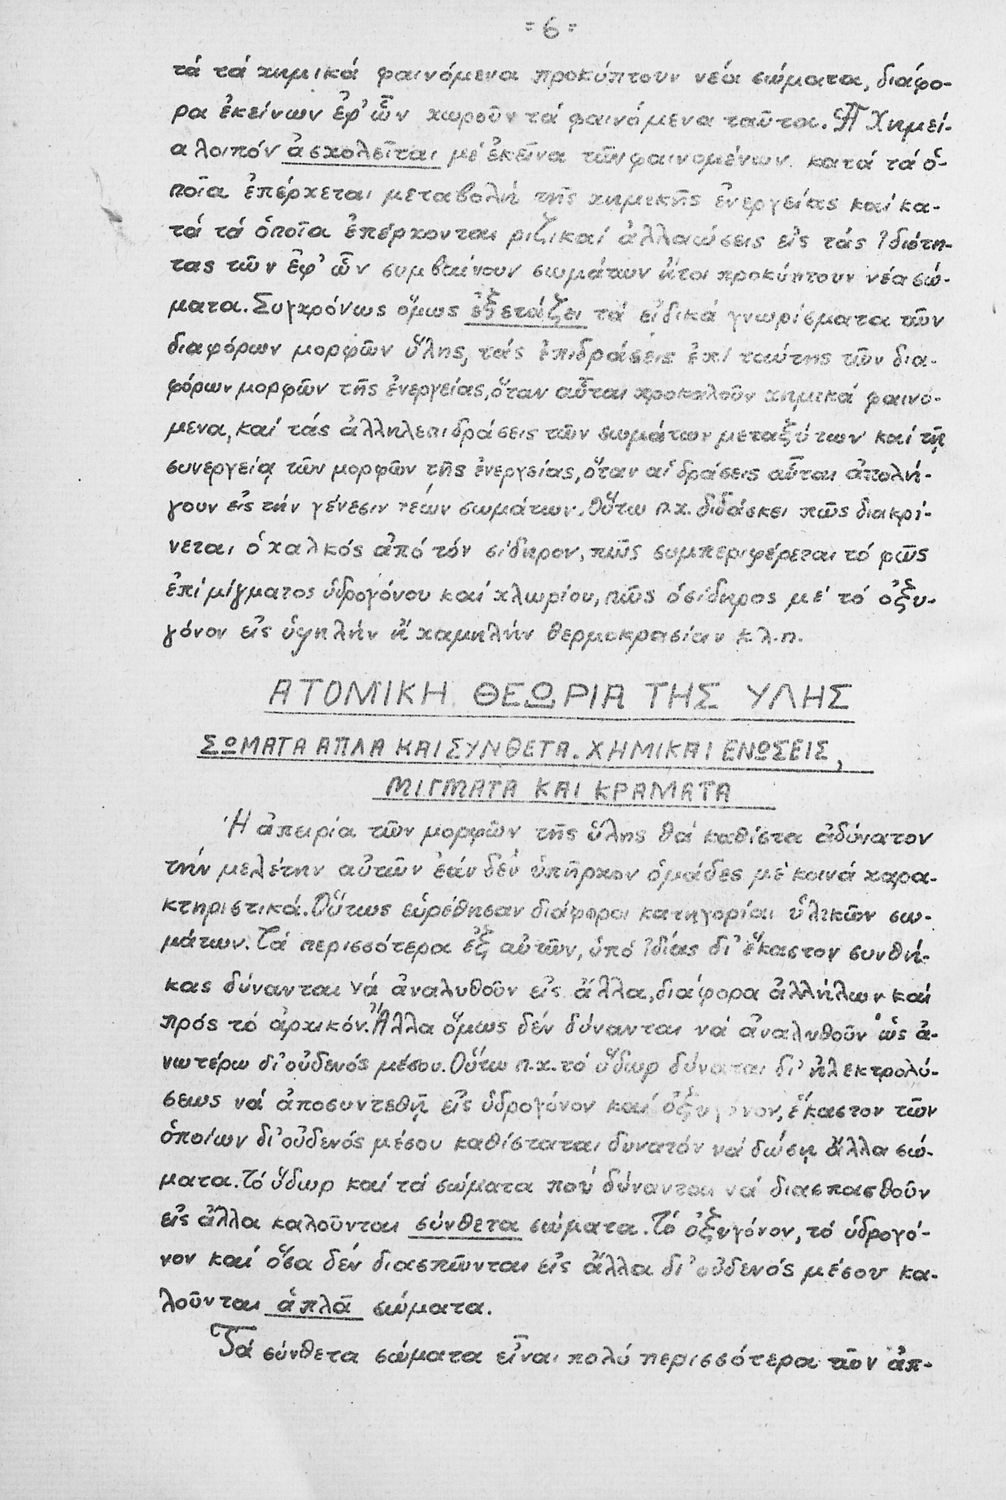 =6=
τά τά χημικά φαινόμενα προκύπτουν νέα σώματα, διάφο-
ρα ἐκείνων ἐφ' ὧν χωροῦν τά φαινόμενα ταῦτα. Ἡ Χημεί-
α λοιπόν ἀσχολεῖται μέ ἐκεῖνα τῶν φαινομένων κατά τά ὁ-
ποῖα ἐπέρχεται μεταβολή τῆς χημικῆς ἐνεργείας καί κα-
τά τά ὁποῖα ἐπέρχονται ριζικαί ἀλλαιώσεις εἰς τάς ἰδιότη-
τας τῶν ἐφ' ὧν συμβαίνουν σωμάτων ἤτοι προκύπτουν νέα σώ-
ματα. Συγχρόνως ὅμως ἐξετάζει τά εἰδικά γνωρίσματα τῶν
διαφόρων μορφῶν ὕλης, τάς ἐπιδράσεις ἐπί ταύτης τῶν δια-
φόρων μορφῶν τῆς ἐνεργείας, ὅταν αὗται προκαλοῦν χημικά φαινό-
μενα, καί τάς ἀλληλεπιδράσεις τῶν σωμάτων μεταξύ των καί τῇ
συνεργείᾳ τῶν μορφῶν τῆς ἐνεργείας, ὅταν αἱ δράσεις αὗται ἀπολή-
γουν εἰς τήν γένεσιν νέων σωμάτων. Οὕτω π.χ. διδάσκει πῶς διακρί-
νεται ὁ χαλκός ἀπό τόν σίδηρον, πῶς συμπεριφέρεται τό φῶς
ἐπί μίγματος ὑδρογόνου καί χλωρίου, πῶς ὁ σίδηρος μέ τό ὀξυ-
γόνον εἰς ὑψηλήν ἤ χαμηλήν θερμοκρασίαν κ.λ.π.
ΑΤΟΜΙΚΗ ΘΕΩΡΙΑ ΤΗΣ ΥΛΗΣ
ΣΩΜΑΤΑ ΑΠΛΑ ΚΑΙ ΣΥΝΘΕΤΑ. ΧΗΜΙΚΑΙ ΕΝΩΣΕΙΣ,
ΜΙΓΜΑΤΑ ΚΑΙ ΚΡΑΜΑΤΑ
Ἡ ἀπειρία τῶν μορφῶν τῆς ὕλης θά καθίστα ἀδύνατον
τήν μελέτην αὐτῶν ἐάν δέν ὑπῆρχον ὁμάδες μέ κοινά χαρα-
κτηριστικά. Οὕτως εὑρέθησαν διάφοροι κατηγορίαι ὑλικῶν σω-
μάτων. Τά περισσότερα ἐξ αὐτῶν, ὑπό ἰδίας δι' ἕκαστον συνθή-
κας δύνανται νά ἀναλυθοῦν εἰς ἄλλα, διάφορα ἀλλήλων καί
πρός τό ἀρχικόν. Ἄλλα ὅμως δέν δύνανται νά ἀναλυθοῦν ὡς ἀ-
νωτέρω δι' οὐδενός μέσου. Οὕτω π.χ. τό ὕδωρ δύναται δι' ἠλεκτρολύ-
σεως νά ἀποσυντεθῇ εἰς ὑδρογόνον καί ὀξυγόνον, ἕκαστον τῶν
ὁποίων δι' οὐδενός μέσου καθίσταται δυνατόν νά δώσῃ ἄλλα σώ-
ματα. Τό ὕδωρ καί τά σώματα πού δύνανται νά διασπασθοῦν
εἰς ἄλλα καλοῦνται σύνθετα σώματα. Τό ὀξυγόνον, τό ὑδρογό-
νον καί ὅσα δέν διασπῶνται εἰς ἄλλα δι' οὐδενός μέσου κα-
λοῦνται ἁπλᾶ σώματα.
Τά σύνθετα σώματα εἶναι πολύ περισσότερα τῶν ἁπ-